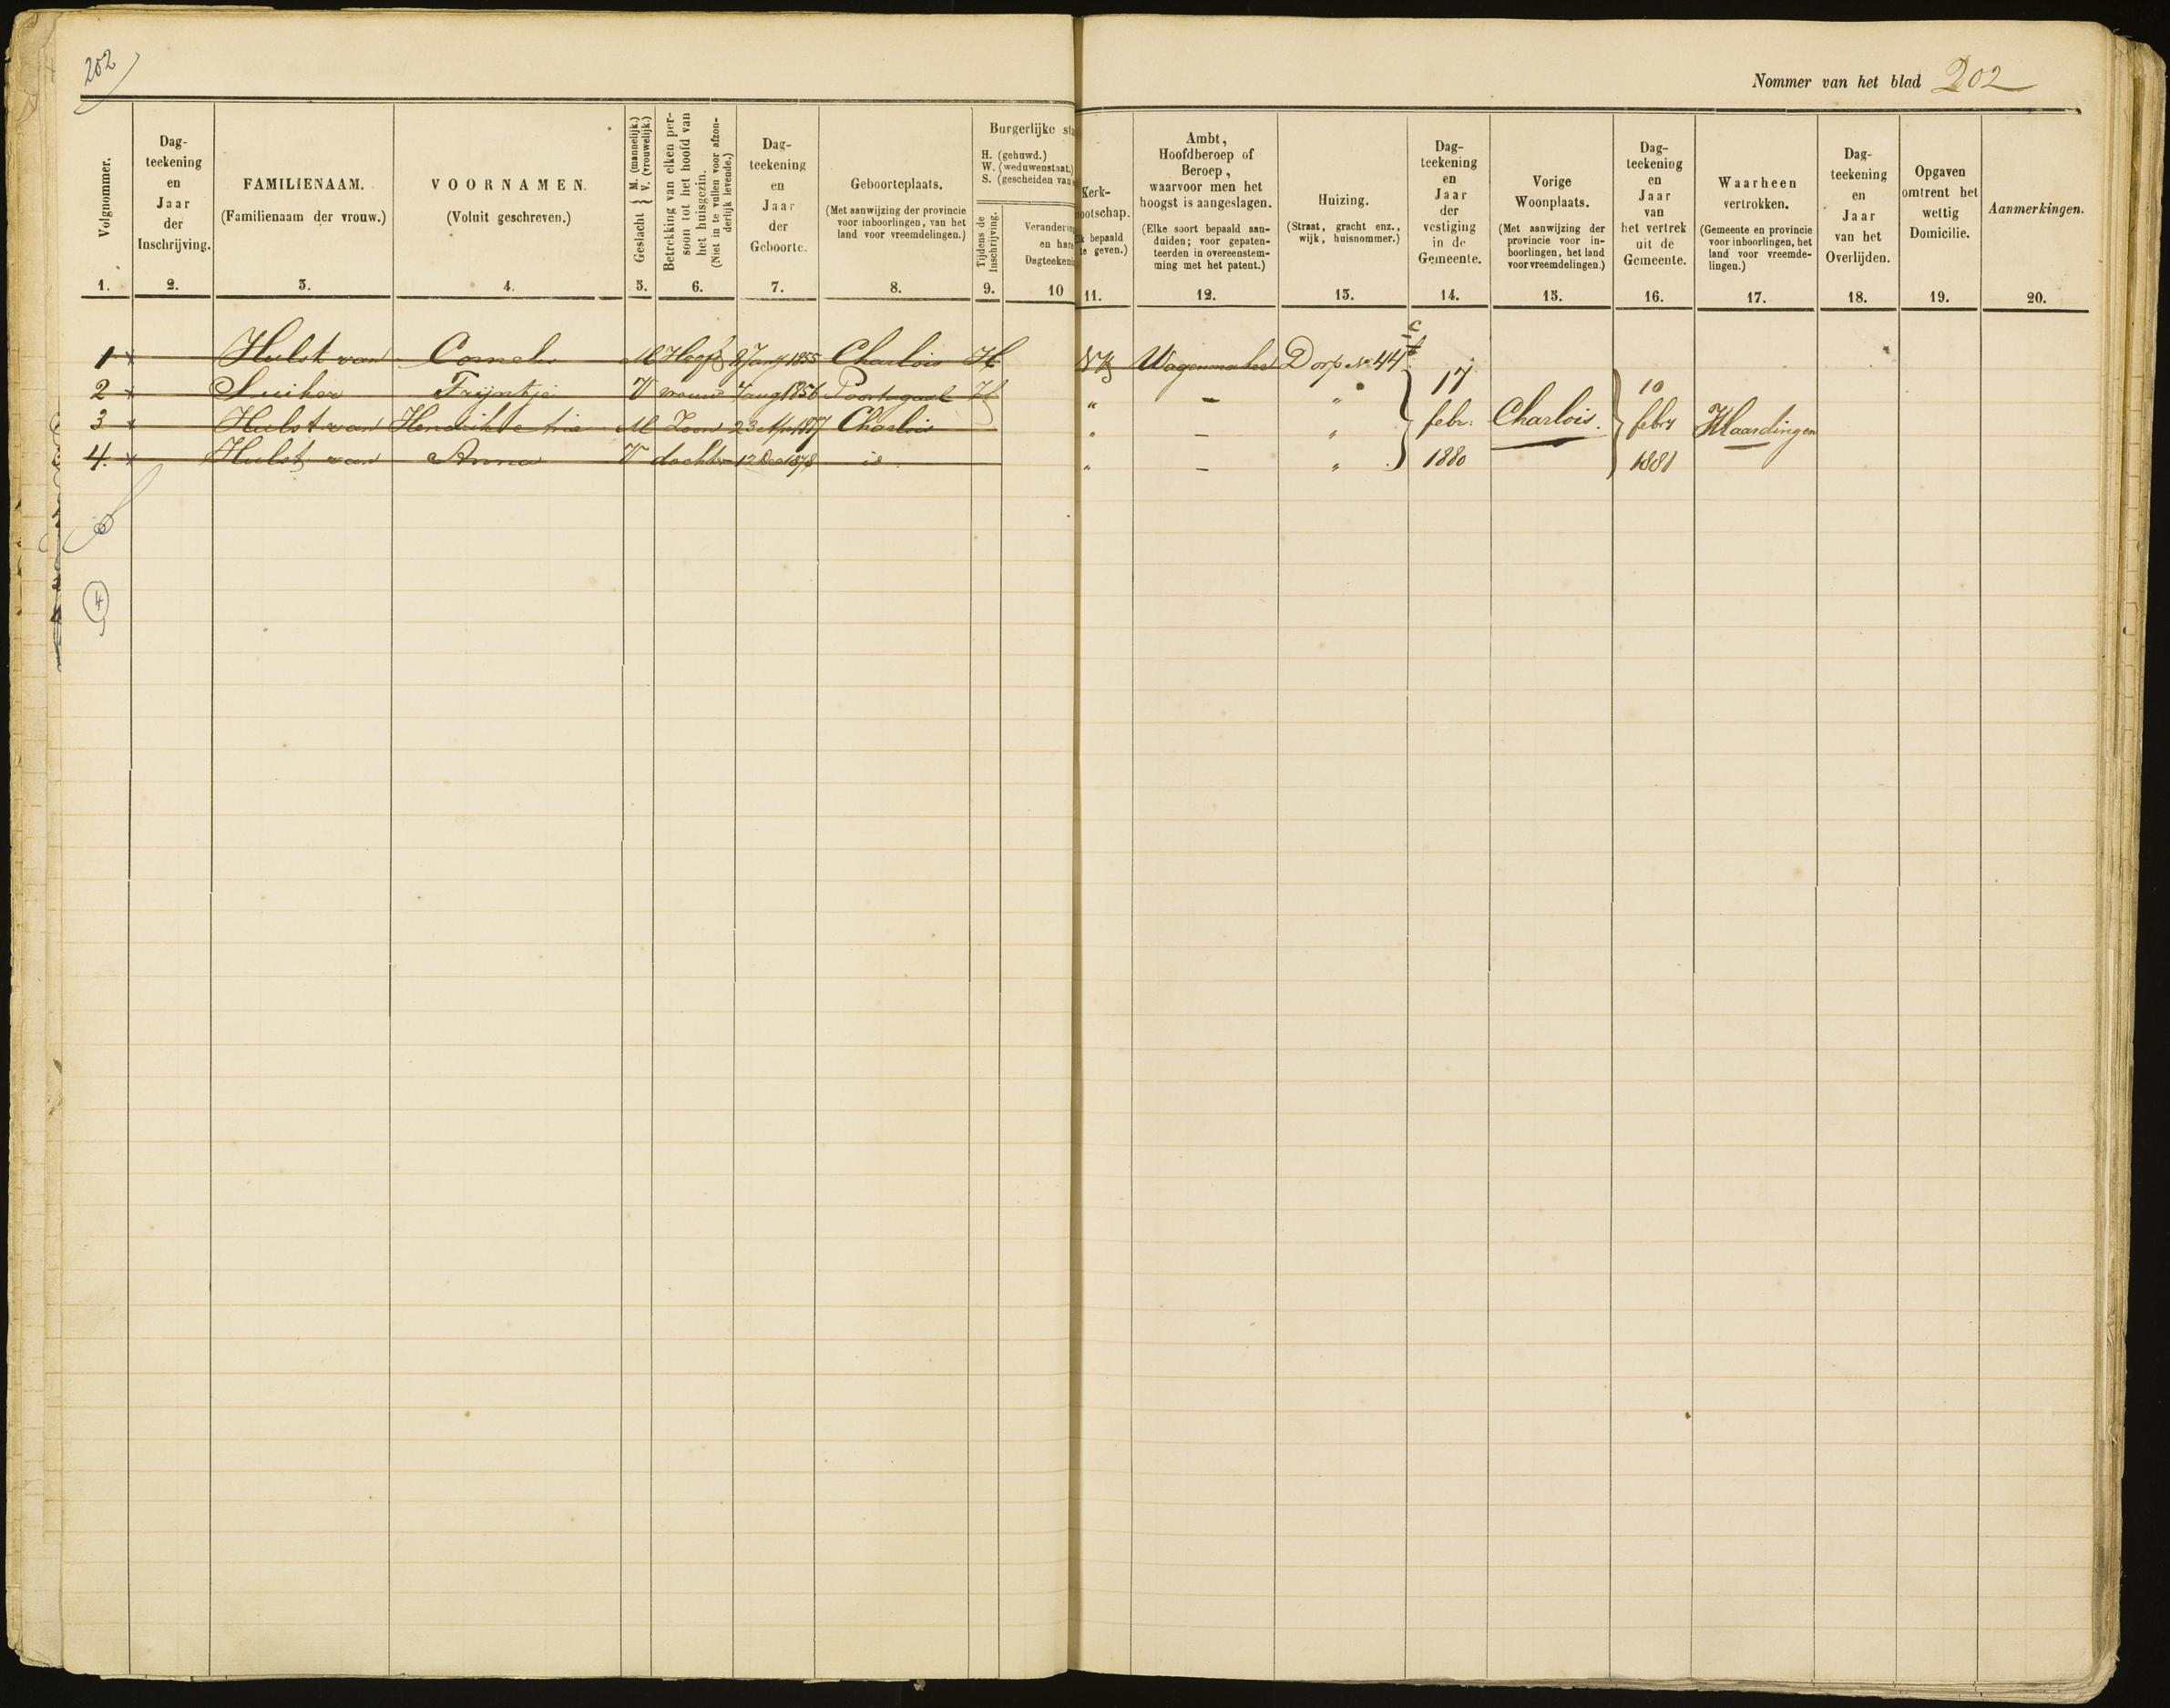 202
Nommer van het blad 202
Volgnommer.
1.
Dag-
teekening
en
Jaar
der
Inschrijving.
2.
FAMILIENAAM.
(Familienaam der vrouw.)
3.
VOORNAMEN.
(Voluit geschreven.)
4.
Geslacht { M. (mannelijk.)
V. (vrouwelijk.)
5.
Betrekking van elken per-
soon tot het hoofd van
het huisgezin.
(Niet in te vullen voor afzon-
derlijk levende.)
6.
Dag-
teekening
en
Jaar
der
Geboorte.
7.
Geboorteplaats.
(Met aanwijzing der provincie
voor inboorlingen, van het
land voor vreemdelingen.)
8.
Burgerlijke sta
H. (gehuwd.)
W. (weduwenstaat.)
S. (gescheiden van
Tijdens de
Inschrijving.
9.
Verandering
en hare
Dagteekening
10
Kerk-
ootschap.
k bepaald
te geven.)
11.
Ambt,
Hoofdberoep of
Beroep,
waarvoor men het
hoogst is aangeslagen.
(Elke soort bepaald aan-
duiden; voor gepaten-
teerden in overeenstem-
ming met het patent.)
12.
Huizing.
(Straat, gracht enz.,
wijk, huisnommer.)
13.
Dag-
teekening
en
Jaar
der
vestiging
in de
Gemeente.
14.
Vorige
Woonplaats.
(Met aanwijzing der
provincie voor in-
boorlingen, het land
voor vreemdelingen.)
15.
Dag-
teekening
en
Jaar
van
het vertrek
uit de
Gemeente.
16.
Waarheen
vertrokken.
(Gemeente en provincie
voor inboorlingen, het
land voor vreemde-
lingen.)
17.
Dag-
teekening
en
Jaar
van het
Overlijden.
18.
Opgaven
omtrent het
wettig
Domicilie.
19.
Aanmerkingen.
20.
1 Hulst van Cornelis M Hoofd 8 Jany 1855 Charlois H NH Wagenmaker Dorp No 44
2 Suiker Trijntje V vrouw 7 aug 1856 Poortugaal H " – "
3 Hulst van Hendrik Arie M Zoon 23 Apr 1877 Charlois " – "
4. Hulst van Anna V dochter 12 Dec 1878 id " – "
17
febr.
1880
Charlois.
10
febry
1881
Vlaardingen
4